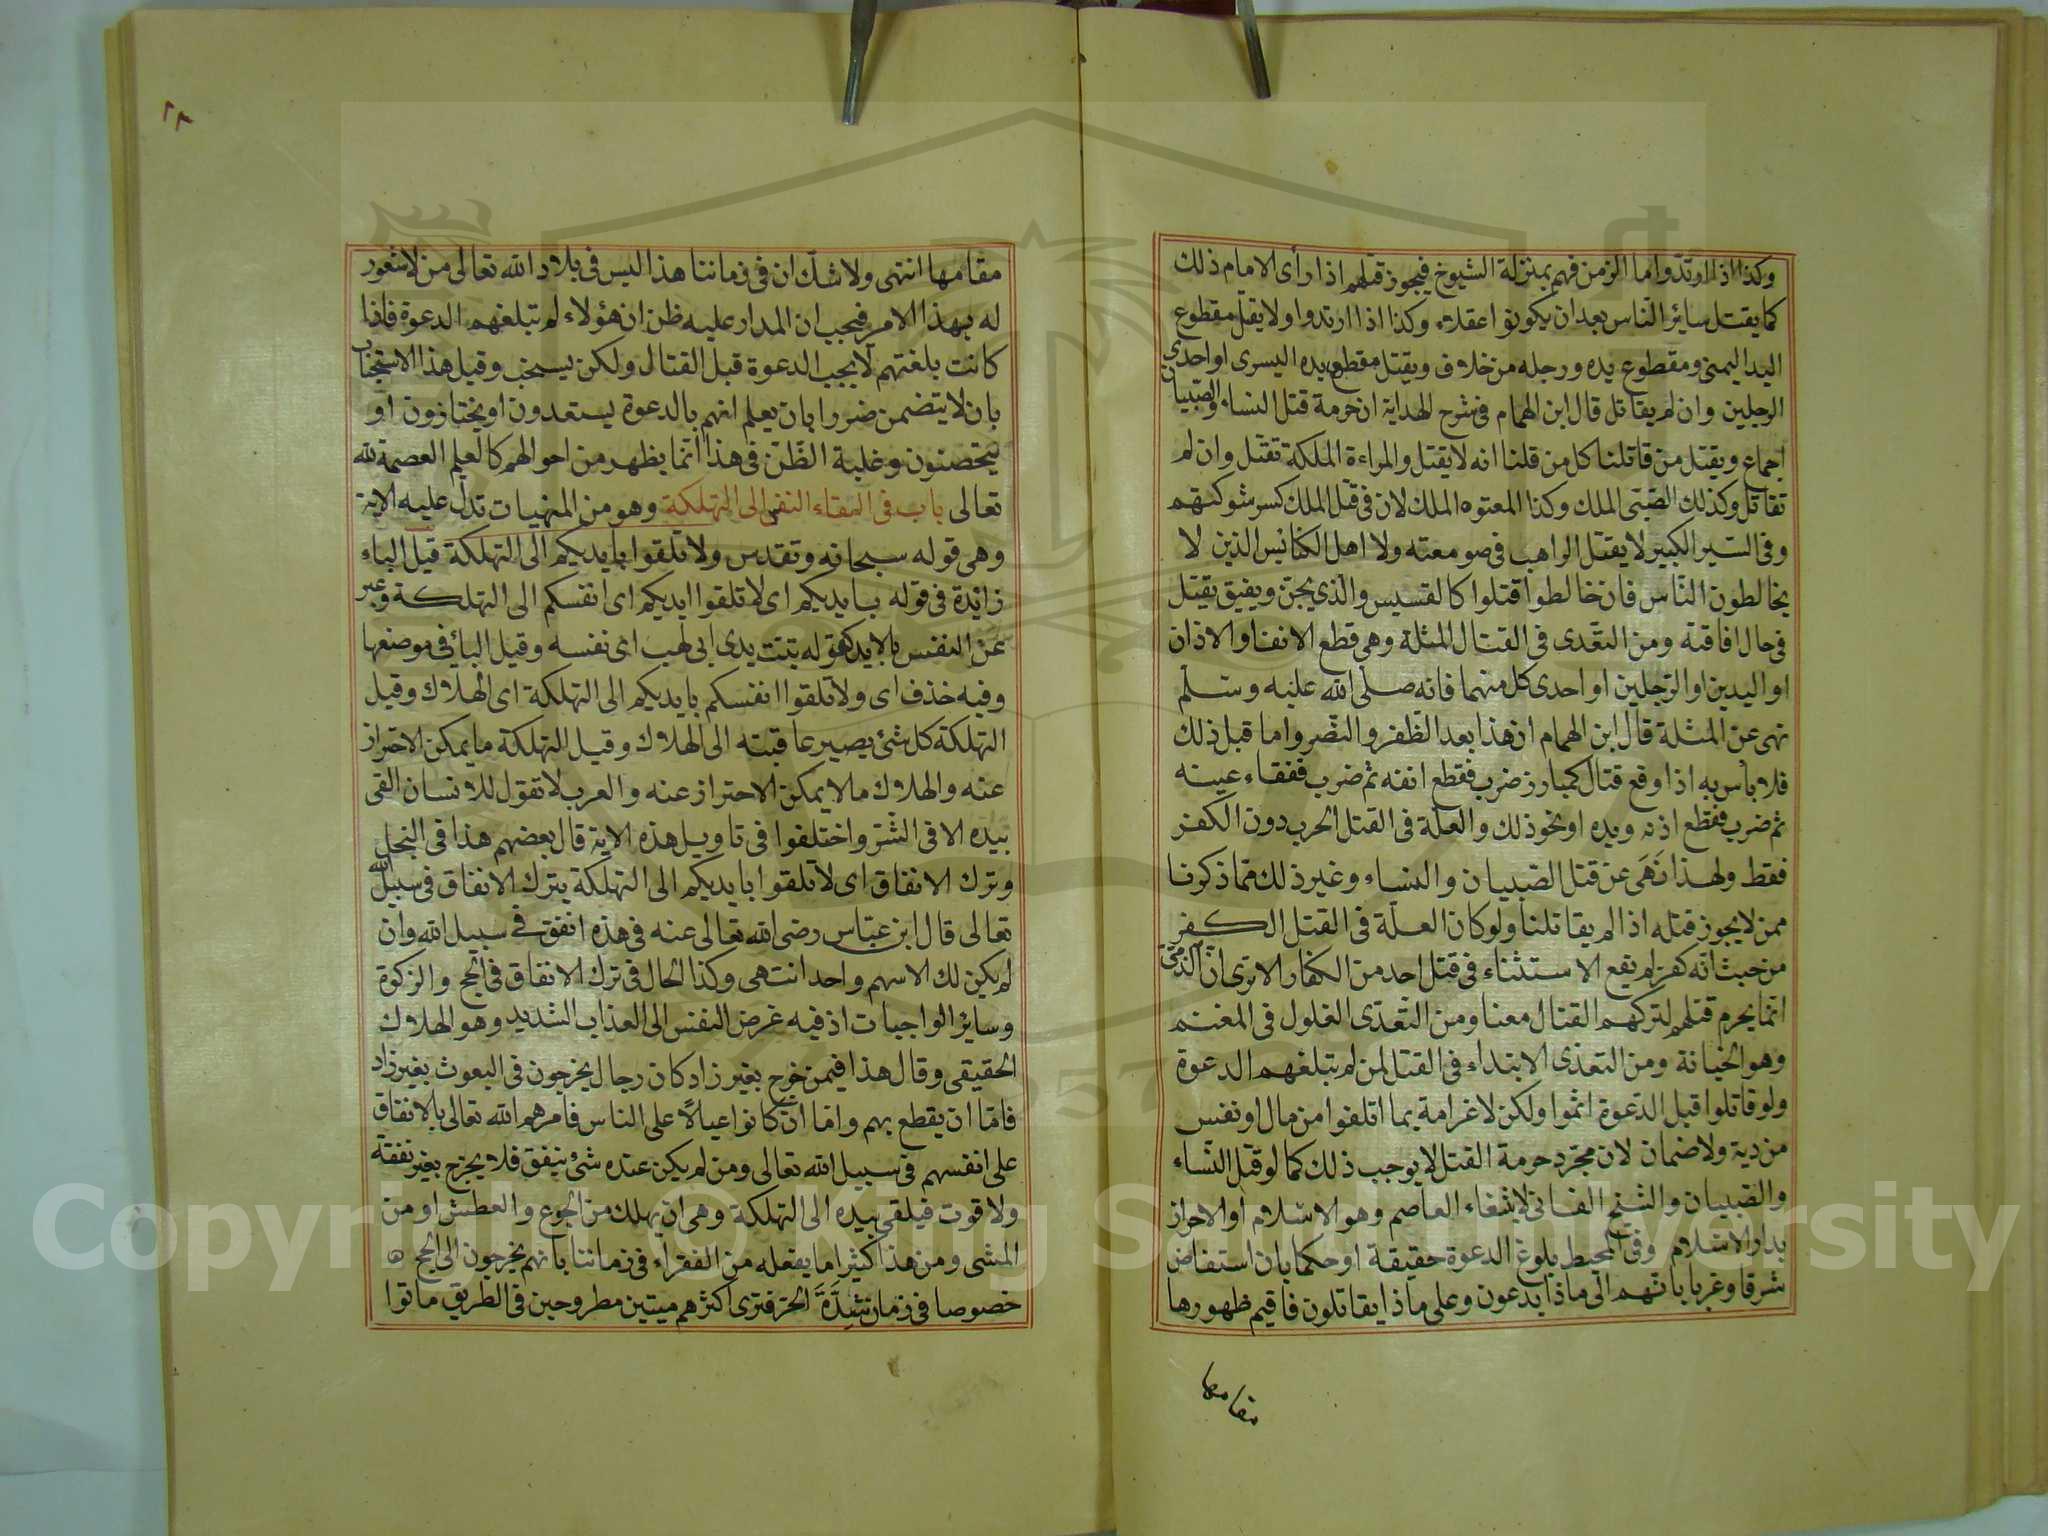 وكذا اذا ارتدوا اما الزمن فهم بمنزلة الشيوخ فيجوز قتلهم اذا رأى الامام ذلك
كما يقتل سائر الناس بعد ان يكونوا عقلاء وكذا اذا ارتدوا ولا يقتل مقطوع
اليد اليمنى ومقطوع يده ورجله من خلاف ويقتل مقطع يده اليسرى او احدى
الرجلين وان لم يقاتل قال ابن الهمام فى شرح الهداية ان حرمة قتل النساء والصبيان
اجماع ويقتل من قاتلنا كل من قلنا انه لا يقتل والمراءة الملكة تقتل وان لم
تقاتل وكذلك الصبى الملك وكذا المعتوه الملك لان فى قتل الملك كسر شوكتهم
وفى السير الكبير لا يقتل الراهب فى صومعته ولا اهل الكنائس الذين لا
يخالطون الناس فان خالطوا قتلوا كالقسيس والذى يجن ويفيق يقتل
فى حال افاقته ومن التعدى فى القتال المثلة وهى قطع الانف او الاذان
او اليدين او الرجلين او احدى كل منهما فانه صلى الله عليه وسلم
نهى عن المثلة قال ابن الهمام ان هذا بعد الظفر والنصر واما قبل ذلك
فلا بأس به اذا وقع قتال كمبارز ضرب فقطع انفه ثم ضرب ففقاء عينه
ثم ضرب فقطع اذنه ويده او نحو ذلك والعلة فى القتل الحرب دون الكفر
فقط ولهذا نهى عن قتل الصبيان والنساء وغير ذلك مما ذكرنا
ممن لا يجوز قتله اذا لم يقاتلنا ولو كان العلة فى القتل الكفر
من حيث انه كفر لم يقع الاستثناء فى قتل احد من الكفار الا ترى ان الذمى
انما يحرم قتلهم لتركهم القتال معنا ومن التعدى الغلول فى المغنم
وهو الخيانة ومن التعدى الابتداء فى القتل لمن لم تبلغهم الدعوة
ولو قاتلوا قبل الدعوة اثموا ولكن لا غرامة بما اتلفوا من مال او نفس
من دية ولا ضمان لان مجرد حرمة القتل لا يوجب ذلك كما لو قتل النساء
والصبيان والشيخ الفانى لانتفاء العاصم وهو الاسلام او الاحراز
بدار الاسلام وفى المحيط بلوغ الدعوة حقيقة او حكما بان استفاض
شرقا وغربا بانهم الى ماذا يدعون وعلى ماذا يقاتلون فاقيم ظهورها
مقامها
٢٨
مقامها انتهى ولا شك ان فى زماننا هذا ليس فى بلاد الله تعالى من لا شعور
له بهذا الامر فيجب ان المدار عليه ظن ان هؤلاء لم تبلغهم الدعوة فاذا
كانت بلغتهم لا يجب الدعوة قبل القتال ولكن يستحب وقيل هذا الاستحباب
بان لا يتضمن ضررا بان يعلم انهم بالدعوة يستعدون او يختازون او
يتحصنون وغلبة الظن فى هذا انما يظهر من احوالهم كالعلم العصمة لله
تعالى باب فى القاء النفس الى التهلكة وهو من المنهيات تدل عليه الاية
وهى قوله سبحانه وتقدس ولا تلقوا بايديكم الى التهلكة قيل الباء
زائدة فى قوله بايديكم اى لا تلقوا ايديكم اى انفسكم الى التهلكة وعبر
عن النفس بالايد كقوله تبت يدى ابى لهب اى نفسه وقيل البائ فى موضعها
وفيه حذف اى ولا تلقوا انفسكم بايديكم الى التهلكة اى الهلاك وقيل
التهلكة كل شئ يصير عاقبته الى الهلاك وقيل التهلكة ما يمكن الاحتراز
عنه والهلاك ما لا يمكن الاحتراز عنه والعرب لا تقول للانسان القى
بيده الا فى الشر واختلفوا فى تاويل هذه الاية قال بعضهم هذا فى البخل
وترك الانفاق اى لا تلقوا بايديكم الى التهلكة بترك الانفاق فى سبيل الله
تعالى قال ابن عباس رضى الله تعالى عنه فى هذه انفق فى سبيل الله وان
لم يكن لك الا سهم واحد انتهى وكذا الحال فى ترك الانفاق فى الحج والزكوة
وسائر الواجبات اذ فيه غرض النفس الى العذاب الشديد وهو الهلاك
الحقيقى وقال هذا فيمن خرج بغير زاد كان رجال يخرجون فى البعوث بغير زاد
فاما ان يقطع بهم واما ان كانوا عيالا على الناس فامرهم الله تعالى بالانفاق
على انفسهم فى سبيل الله تعالى ومن لم يكن عنده شئ ينفق فلا يخرج بغير نفقة
ولا قوت فيلقى بيده الى التهلكة وهى ان يهلك من الجوع والعطش او من
المشى ومن هذا كثيرا ما يفعله من الفقراء فى زماننا بانهم يخرجون الى الحج
خصوصا فى زمان شدة الحر فترى اكثرهم ميتين مطروحين فى الطريق ماتوا
Copyright © King Saud University